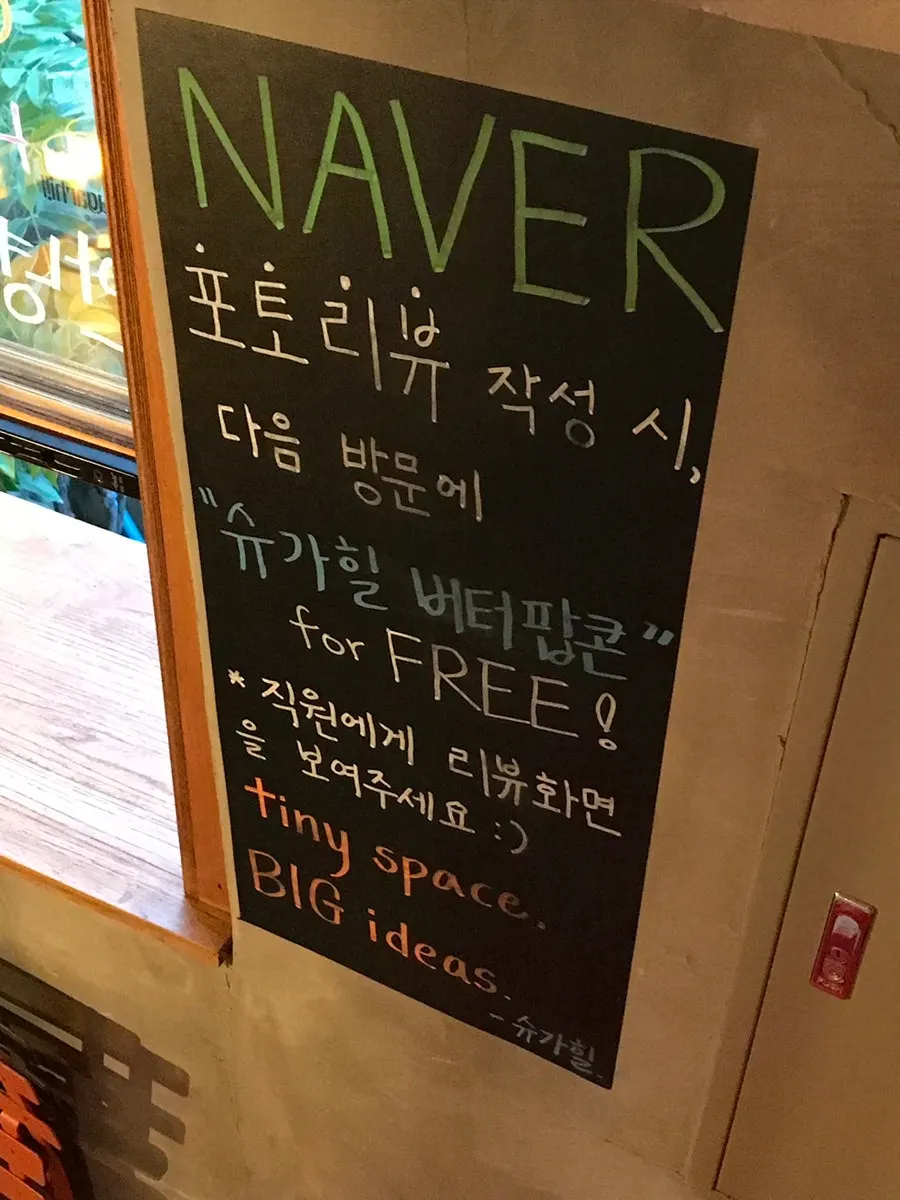 NAVER
포토리뷰 작성 시,
다음 방문에
"슈가힐 버터팝콘"
for FREE!
* 직원에게 리뷰화면
을 보여주세요 :)
tiny space.
BIG ideas.
- 슈가힐.